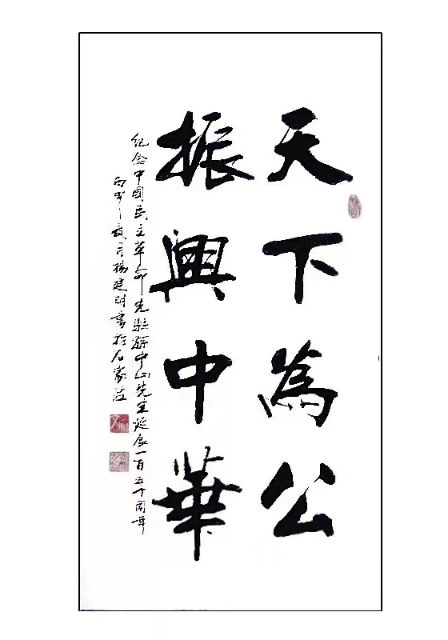 天下為公
振興中華
紀念中國民主革命先驅孫中山先生誕辰一百五十周年
丙申 楊建明書於石家莊